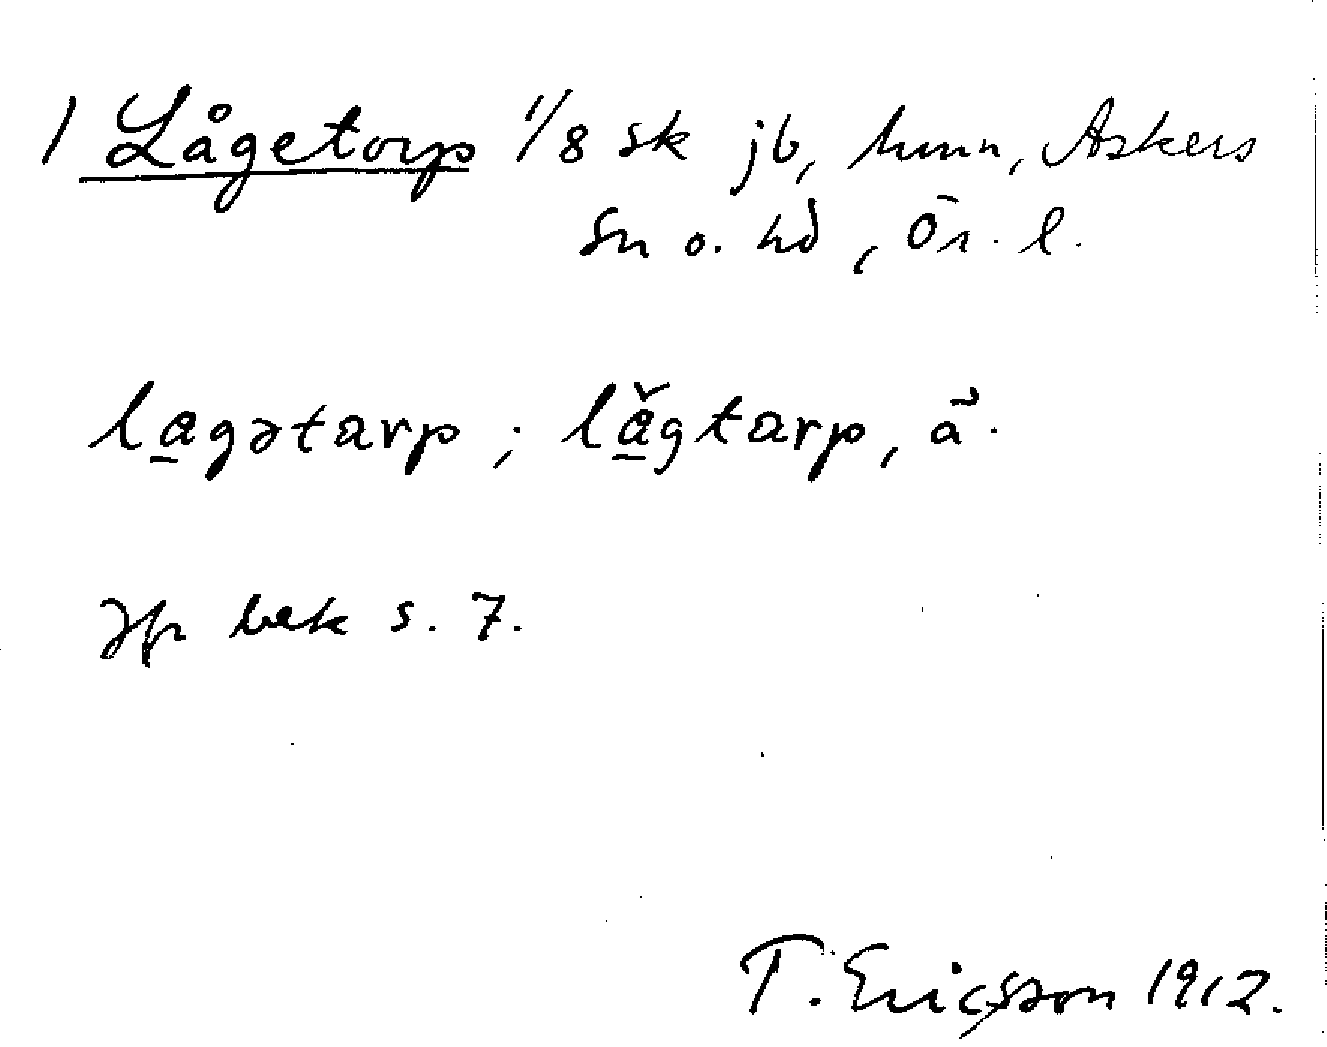 1 Lågetorp 1/8 sk jb, hmn, Askers
sn o. hd, Ör. l.
lagətarp; lǎgtarp, ã.
Jfr bek s. 7.
T. Ericsson 1912.